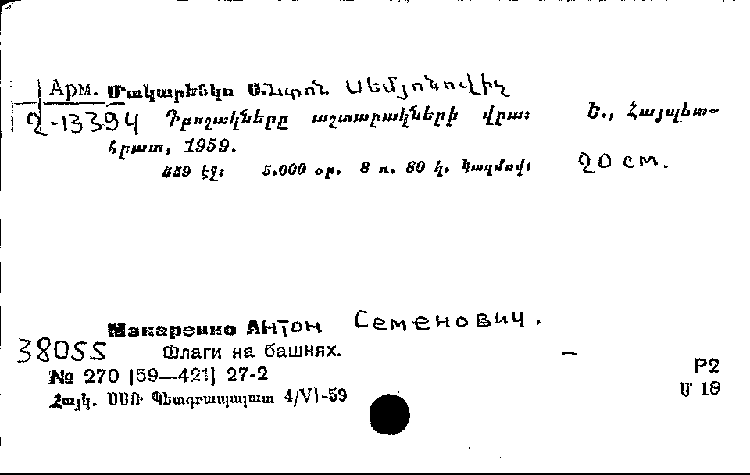 Арм. Մակարենկո Անտոն Սեմյոնովիչ
2-13394 Դրոշակները աշտարակների վրա։ Ե., Հայպետ-
հրատ, 1959.
559 էջ։ 5.000 օր. 8 ռ. 80 կ. Կազմով։ 20 см.
Макаренко Антон Семенович.
38055 Флаги на башнях. —
№ 270 [59—421] 27-2 Р2
Հայկ. ՍՍՌ Պետգրապալատ 4/VI-59 Մ 18